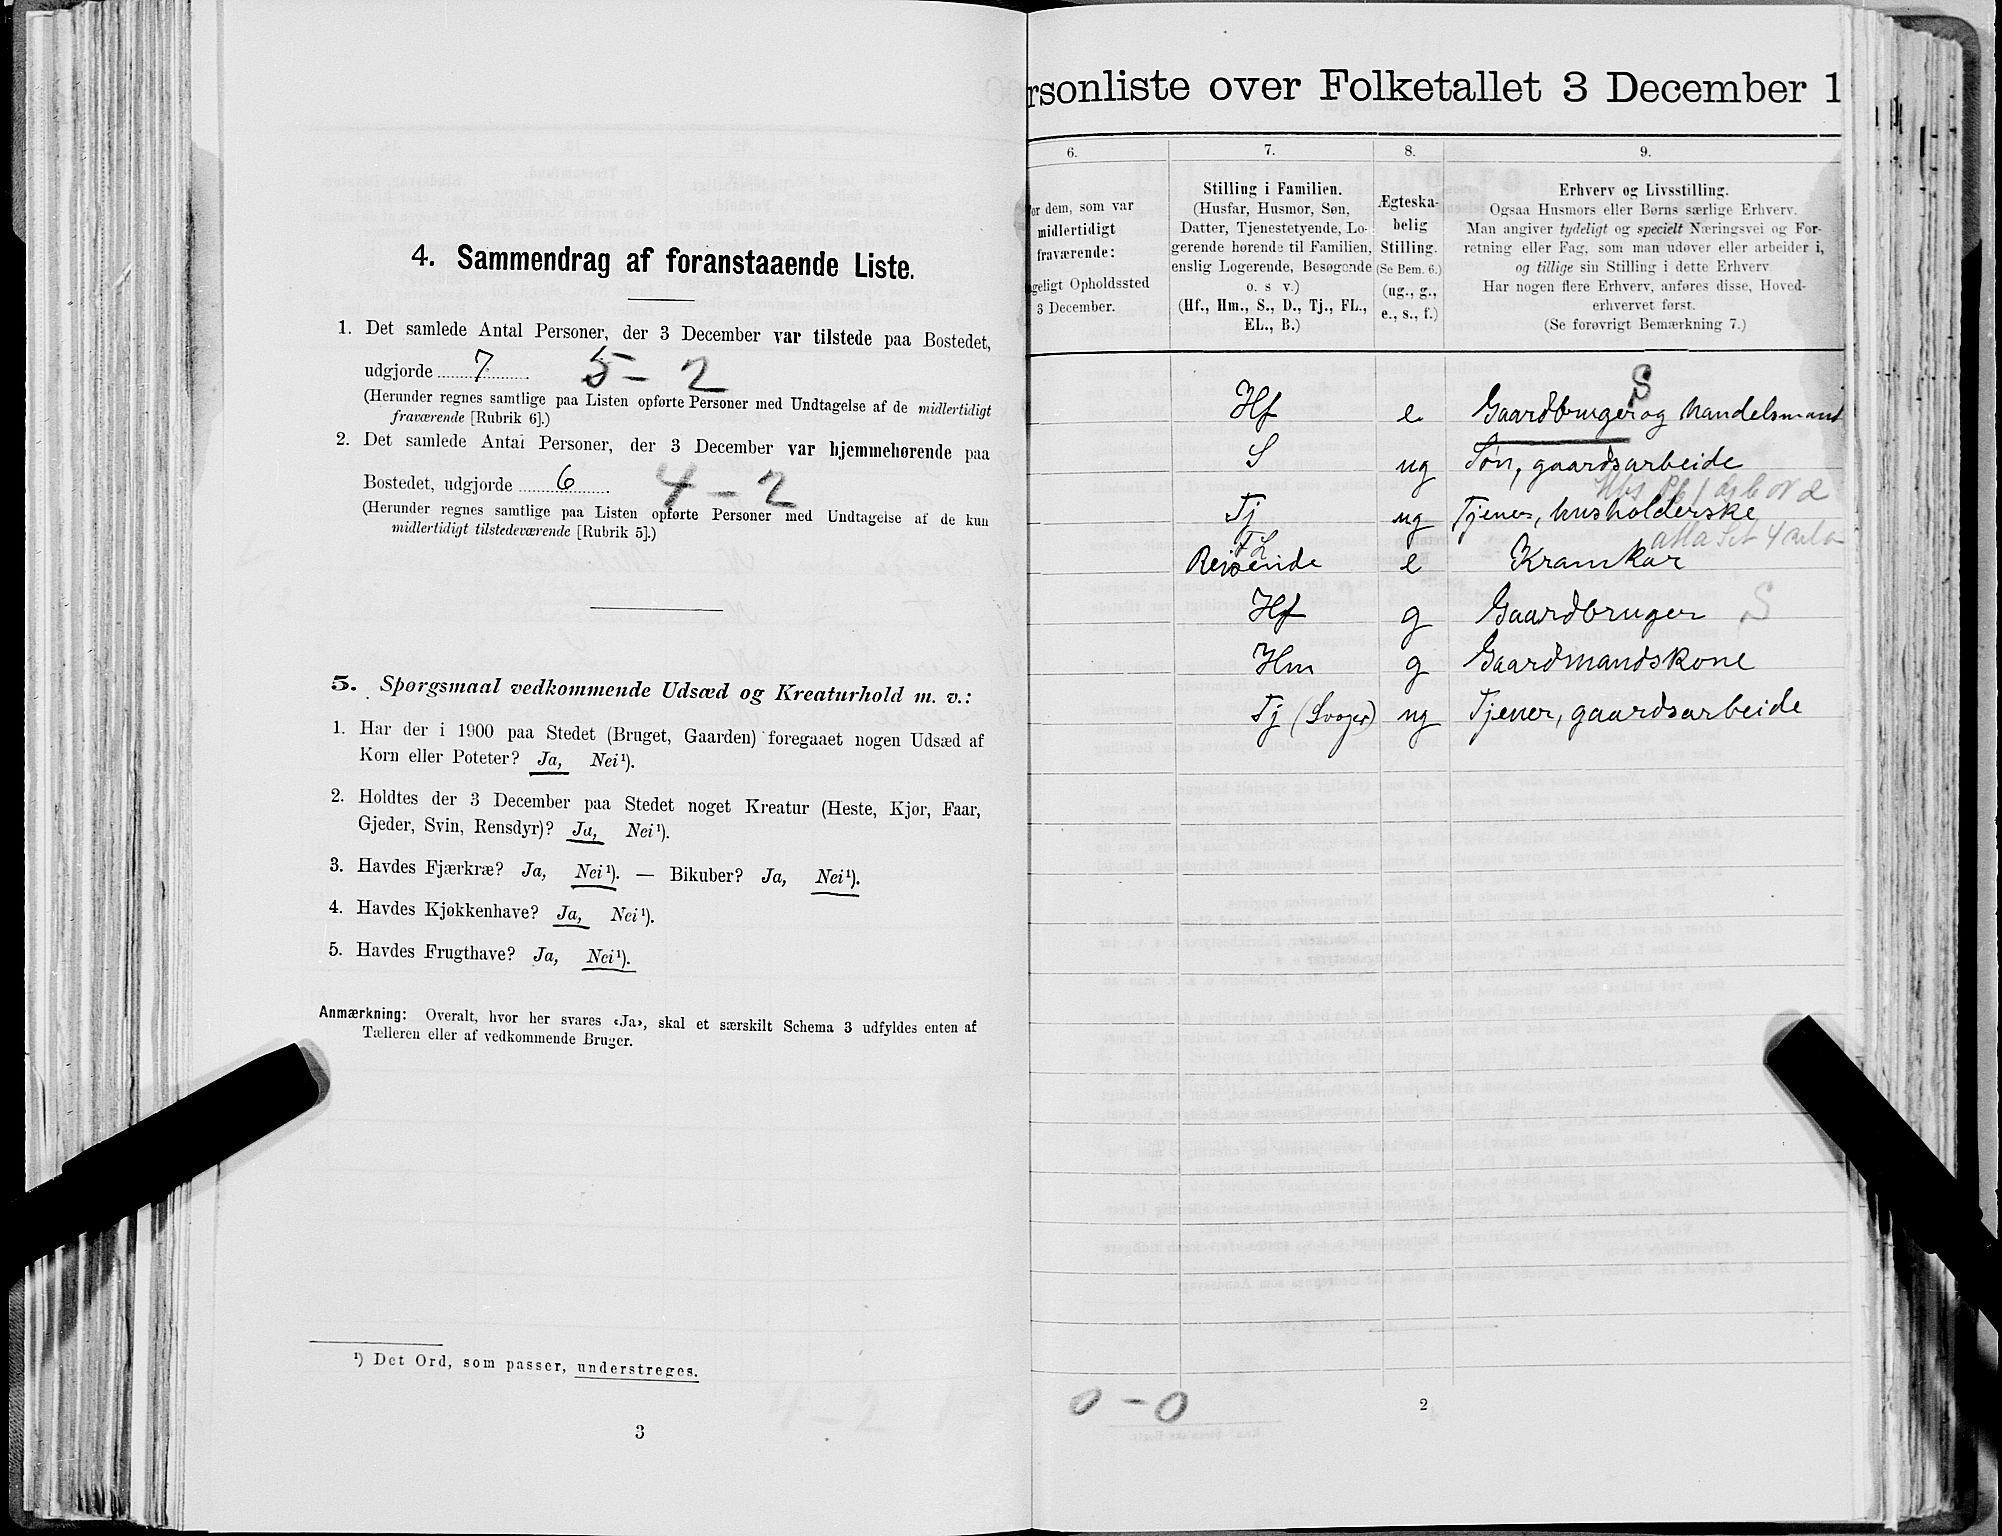 4. Sammendrag af foranstaaende Liste.
1. Det samlede Antal Personer, der 3 December var tilstede paa Bostedet,
udgjorde 7 5 - 2
(Herunder regnes samtlige paa Listen opførte Personer med Undtagelse af de midlertidigt
fraværende [Rubrik 6].)
2. Det samlede Antal Personer, der 3 December var hjemmehørende paa
Bostedet, udgjorde 6 4 - 2
(Herunder regnes samtlige paa Listen opførte Personer med Undtagelse af de kun
midlertidigt tilstedeværende [Rubrik 5].)
5. Spørgsmaal vedkommende Udsæd og Kreaturhold m. v.:
1. Har der i 1900 paa Stedet (Bruget, Gaarden) foregaaet nogen Udsæd af
Korn eller Poteter? Ja, Nei¹).
2. Holdtes der 3 December paa Stedet noget Kreatur (Heste, Kjør, Faar,
Gjeder, Svin, Rensdyr)? Ja, Nei¹).
3. Havdes Fjærkræ? Ja, Nei¹). — Bikuber? Ja, Nei¹).
4. Havdes Kjøkkenhave? Ja, Nei¹).
5. Havdes Frugthave? Ja, Nei¹).
Anmærkning: Overalt, hvor her svares «Ja», skal et særskilt Schema 3 udfyldes enten af
Tælleren eller af vedkommende Bruger.
¹) Det Ord, som passer, understreges.
4 - 2
3
rsonliste over Folketallet 3 December 1
6. 7. 8. 9.
or dem, som var
midlertidigt
fraværende:
geligt Opholdssted
3 December.
Stilling i Familien.
(Husfar, Husmor, Søn,
Datter, Tjenestetyende, Lo-
gerende hørende til Familien,
enslig Logerende, Besøgende
o. s v.)
(Hf., Hm., S., D., Tj., FL.,
EL., B.)
Ægteska-
belig
Stilling.
(Se Bem. 6.)
(ug., g.,
e., s., f.)
Erhverv og Livsstilling.
Ogsaa Husmors eller Børns særlige Erhverv.
Man angiver tydeligt og specielt Næringsvei og For-
retning eller Fag, som man udøver eller arbeider i,
og tillige sin Stilling i dette Erhverv
Har nogen flere Erhverv, anføres disse, Hoved-
erhvervet først.
(Se forøvrigt Bemærkning 7.)
S
Hf e Gaardbruger og handelsmand
S ug Søn, gaardsarbeide
Tj ug Tjener, husholderske
FL
Reisende e Kramkar
Hf g Gaardbruger S
Hm g Gaardmandskone
Tj (Svoger) ug Tjener, gaardsarbeide
0 - 0
2